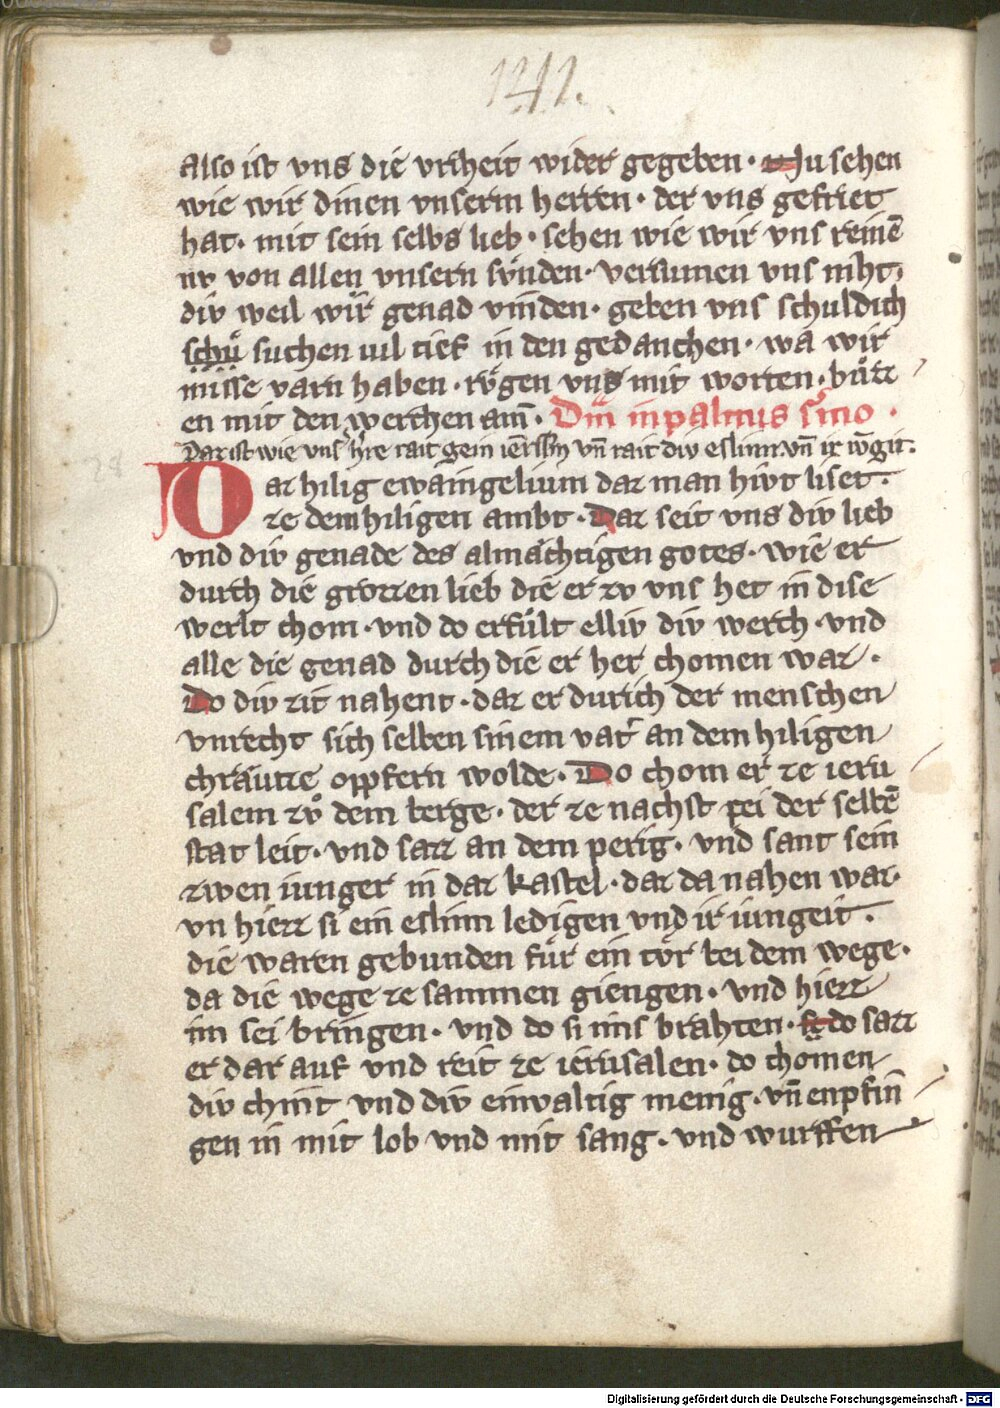 1211.
also ist vns die vriheit wider gegeben · Nu sehen
wie wir dinen vnserm herren · der vns gefriet
hat · mit sein selbs lieb · sehen wie wir vns reinē
nv von allen vnsern sv̊nden · versumen vns niht
div weil wir genad vinden · geben vns schuldich
schů suchen vil tief in den gedanchen · wa wir
misse varn haben · rv̊gen vns mit worten · bůzz
en mit den werchen am̄ · Dn̄i in palmis s̄mo ·
Daz ist wie vnſ h̄re rait gein ier̄ſſm vn̄ rait div eslinn · vn̄ ir iv̄git ·
Daz hilig ewaingelium daz man hivt liset ·
ze dem hiligen ambt · Daz seit vns div lieb
vnd div genade des almæchtigen gotes · wie er
durch die grozzen lieb die er zv vns het in dise
werlt chom · vnd do erfůlt elliv div werch · vnd
alle die genad durch die er her chomen waz ·
Do div zit nahent · daz er durich der menschen
vnrecht sich selben sinem vat̄ an dem hiligen
chråutze oppfern wolde · Do chom er ze ieru
salem zv̊ dem berge · der ze nachst pei der selbē
stat leit · vnd sazz an dem perig · vnd sant sein
zwen iunger in daz kastel · daz da nahen waz
vn hiezz si ein eslinn ledigen vnd ir iungeit ·
die waren gebunden fůr ein tor bei dem wege ·
da die wege ze sammen giengen · vnd hiezz
im sei bringen · vnd do si ims brahten · do sazz
er dar auf vnd reit ze ierusalen · do chomen
div chint vnd div einvaltig menig · vn̄ enpfin
gen in mit lob vnd mit sang · vnd wurffen
28
Digitalisierung gefördert durch die Deutsche Forschungsgemeinschaft - DFG